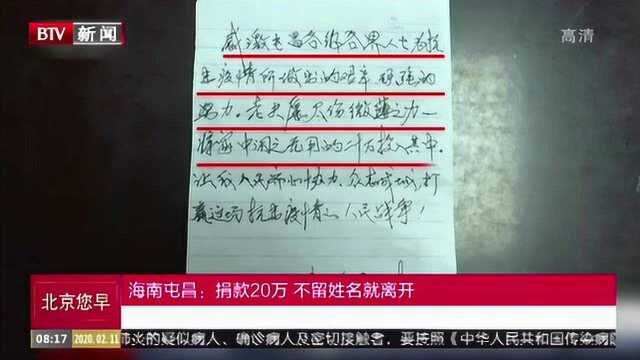 BTV 新闻
高清
感激屯昌各级各界人士为抗
击疫情所做出的艰辛
努力。老夫愿尽份微薄之力一
将家中闲之无用的二十万投入其中。
让我人民齐心协力、众志成城，打
赢这场抗击疫情的人民战争！
海南屯昌：捐款20万 不留姓名就离开
北京您早
08:17 2020.02.11 肺炎的疑似病人、确诊病人及密切接触者，要按照《中华人民共和国传染病